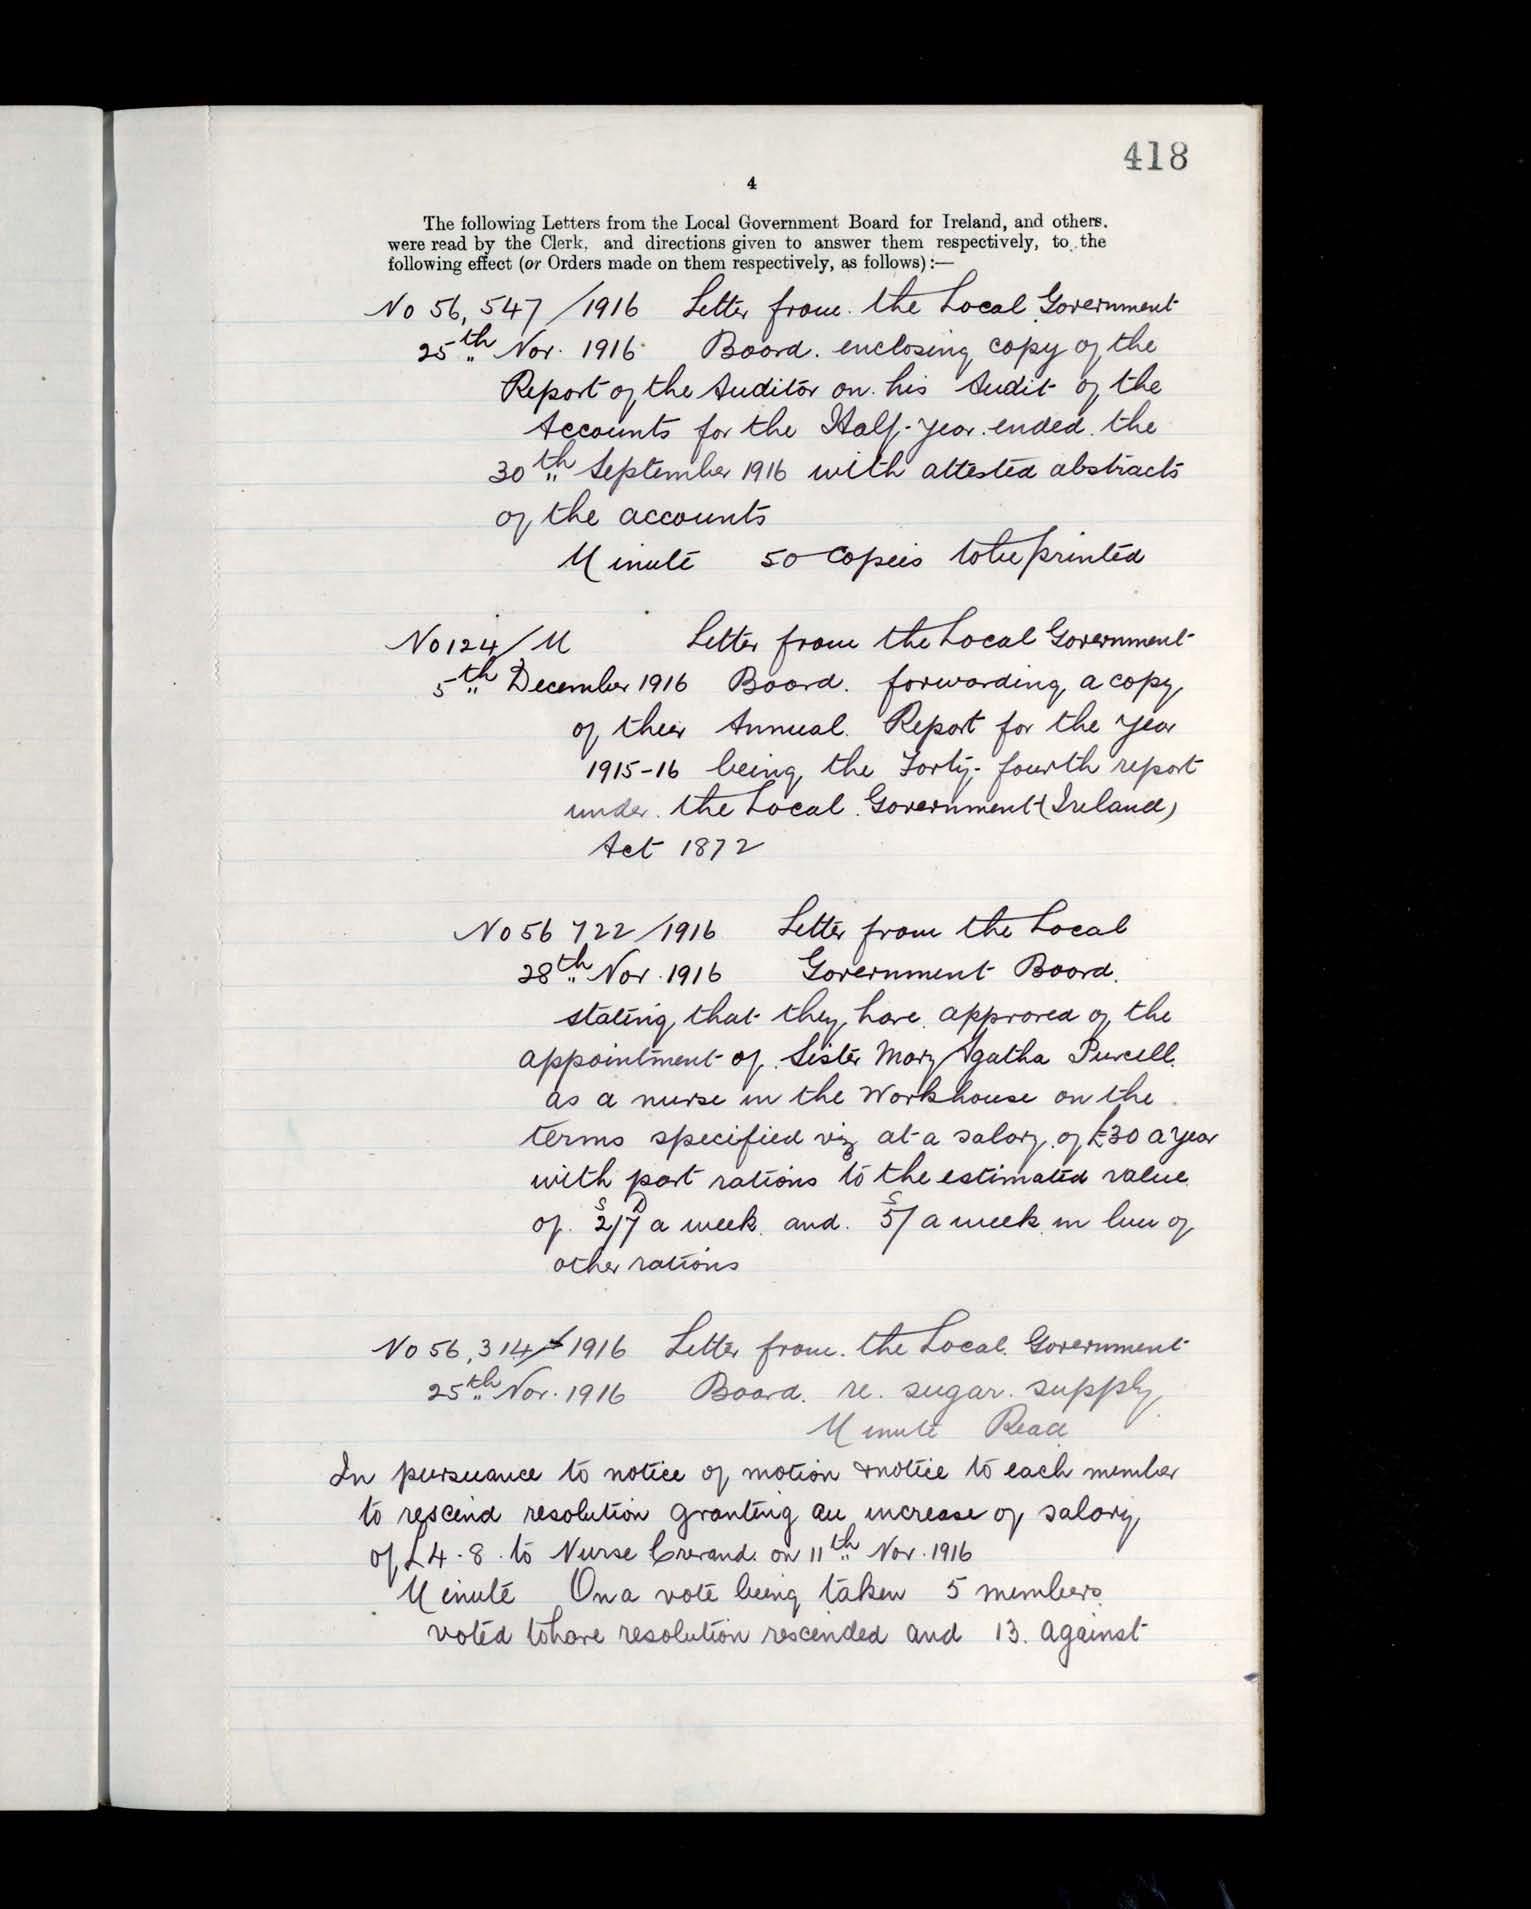 418
4
The following Letters from the Local Government Board for Ireland, and others.
were read by the Clerk, and directions given to answer them respectively, to the
following effect (or Orders made on them respectively, as follows):—
No 56,547/1916 Letter from the Local Government
25th Nov. 1916 Board. enclosing copy of the
Report of the Auditor on his Audit of the
Accounts for the Half-year ended the
30th September 1916 with attested abstracts
of the accounts
Minute 50 copies to be printed
No 124/M Letter from the Local Government
5th December 1916 Board. forwarding a copy
of their Annual Report for the year
1915-16 being the Forty-fourth report
under the Local Government (Ireland)
Act 1872
No 56 722/1916 Letter from the Local
28th Nov. 1916 Government Board.
stating that they have approved of the
appointment of Sister Mary Agatha Purcell
as a nurse in the Workhouse on the
terms specified viz at a salary of £30 a year
with part rations to the estimated value
of 2S/7D a week and 5S/ a week in lieu of
other rations
No 56,314/1916 Letter from the Local Government
25th Nov. 1916 Board. re. sugar supply
Minute Read
In pursuance to notice of motion & notice to each member
to rescind resolution granting an increase of salary
of £4.8. to Nurse on 11th Nov. 1916
Minute On a vote being taken 5 members
voted to have resolution rescinded and 13 against